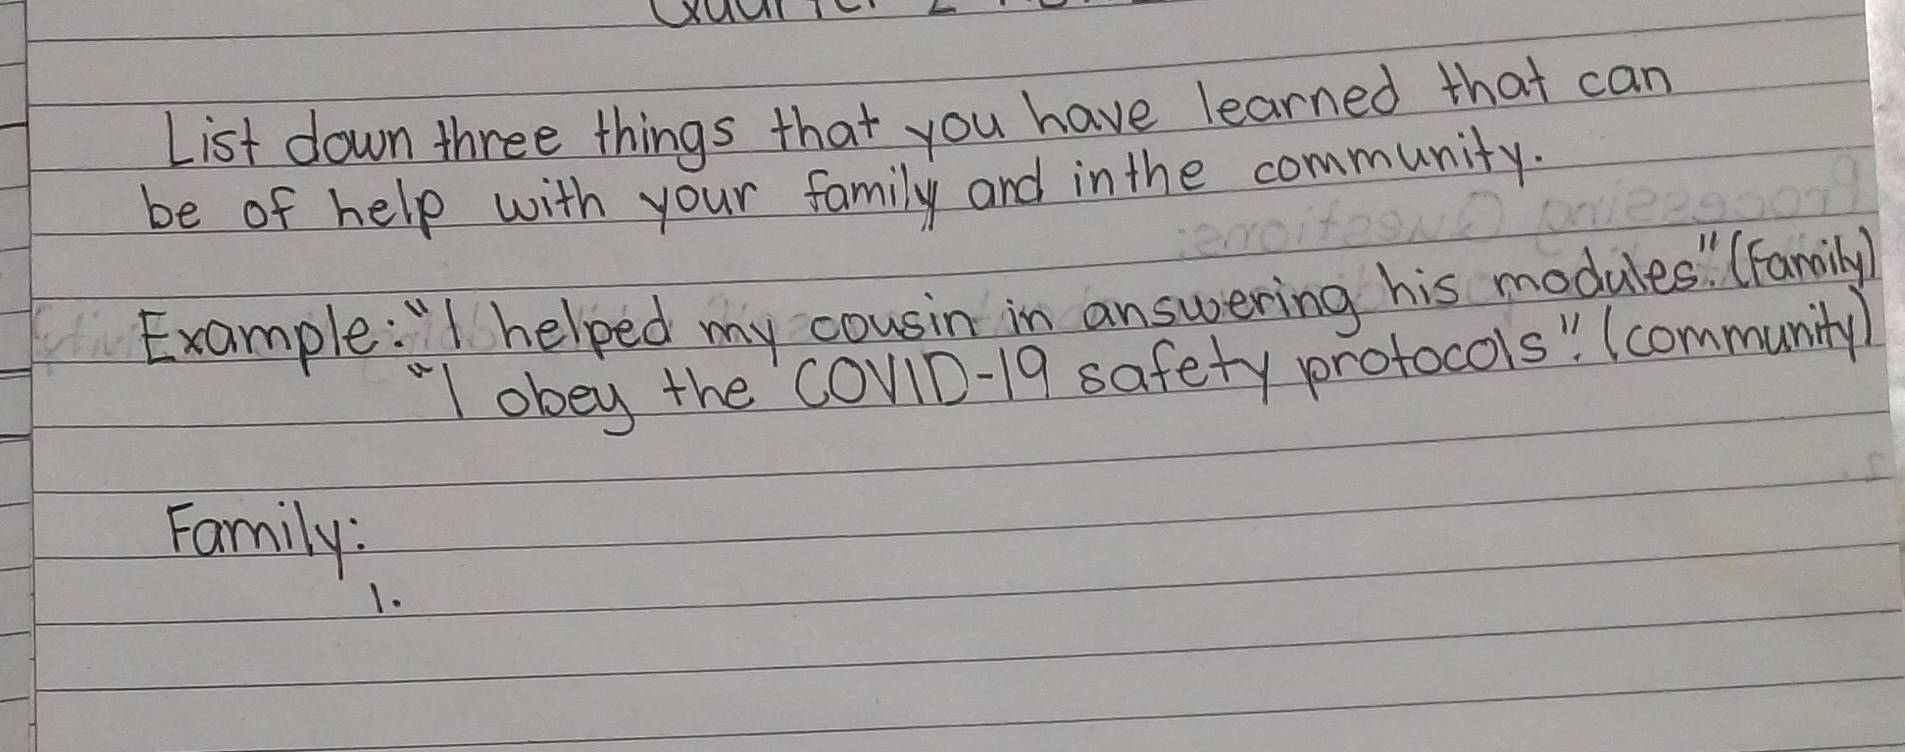 List down three things that you have learned that can
be of help with your family and in the community.
Processing Questions:
Example: "I helped my cousin in answering his modules." (Family)
"I obey the COVID-19 safety protocols". (community)
Family:
1.